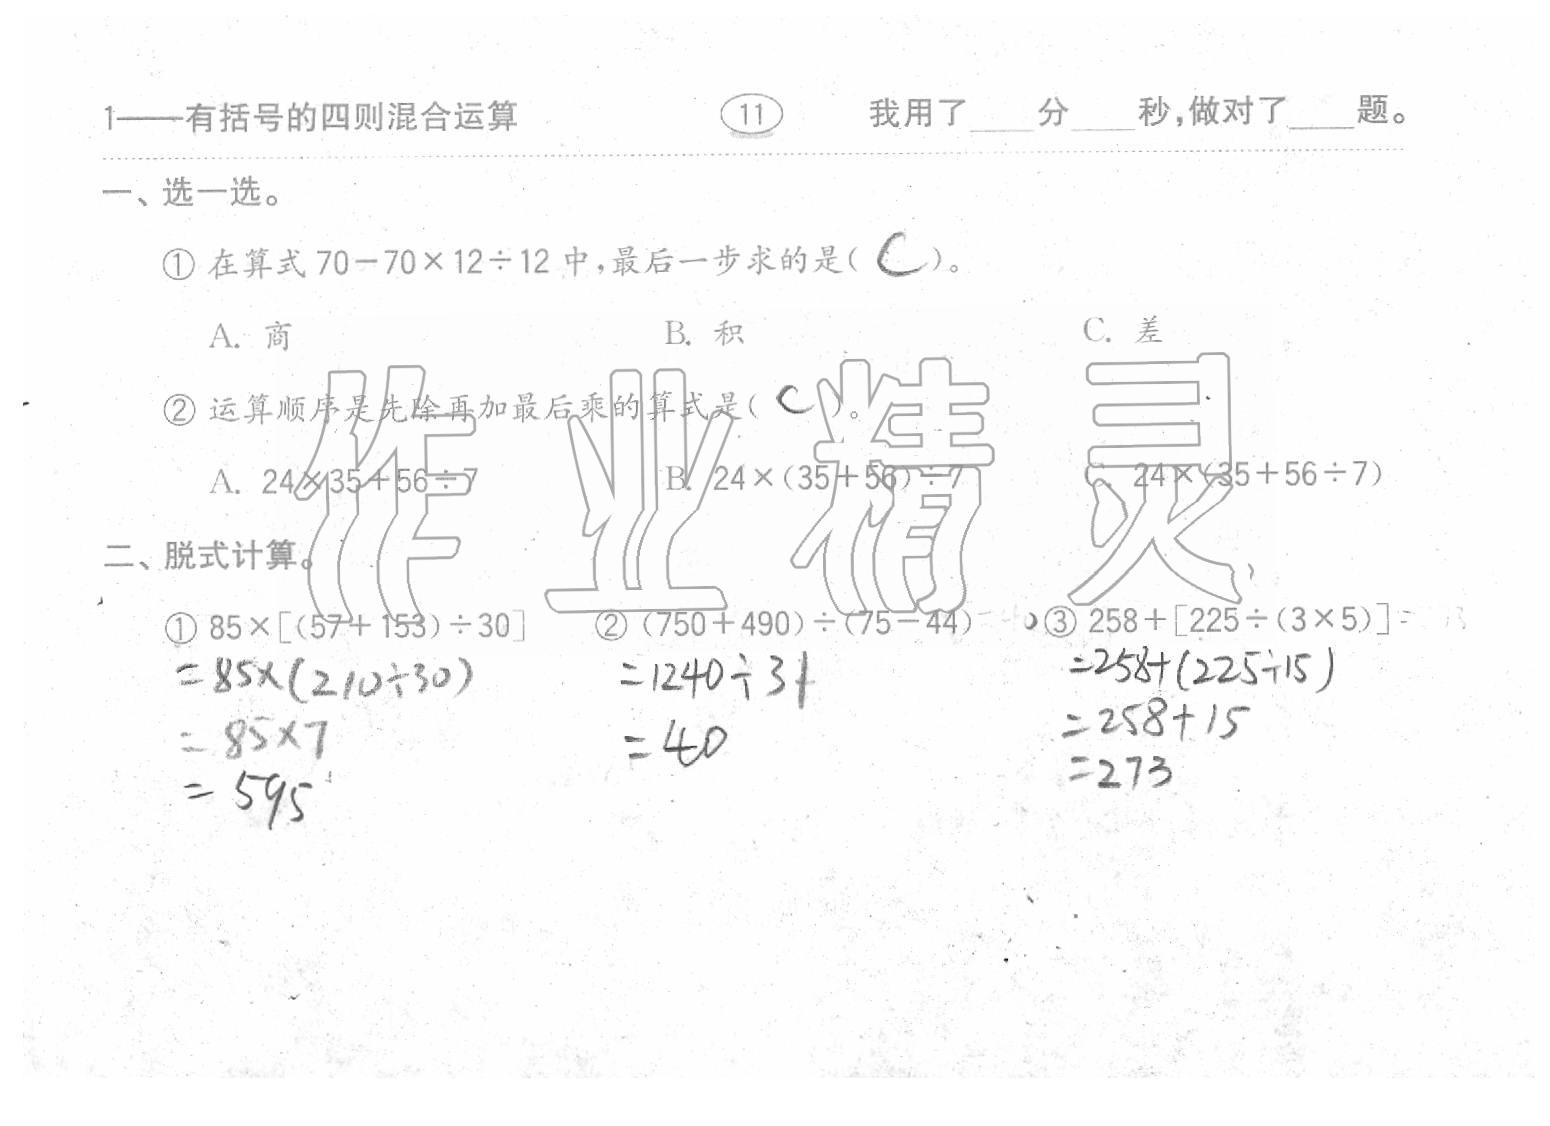 1——有括号的四则混合运算 11 我用了____分____秒,做对了____题。
一、选一选。
① 在算式 70-70×12÷12 中,最后一步求的是( C )。
A. 商 B. 积 C. 差
② 运算顺序是先除再加最后乘的算式是( C )。
A. 24×35+56÷7 B. 24×(35+56)÷7 C. 24×(35+56÷7)
作业精灵
二、脱式计算。
① 85×[(57+153)÷30] ② (750+490)÷(75-44) ③ 258+[225÷(3×5)]
=85×(210÷30) =1240÷31 =258+(225÷15)
=85×7 =40 =258+15
=595 =273